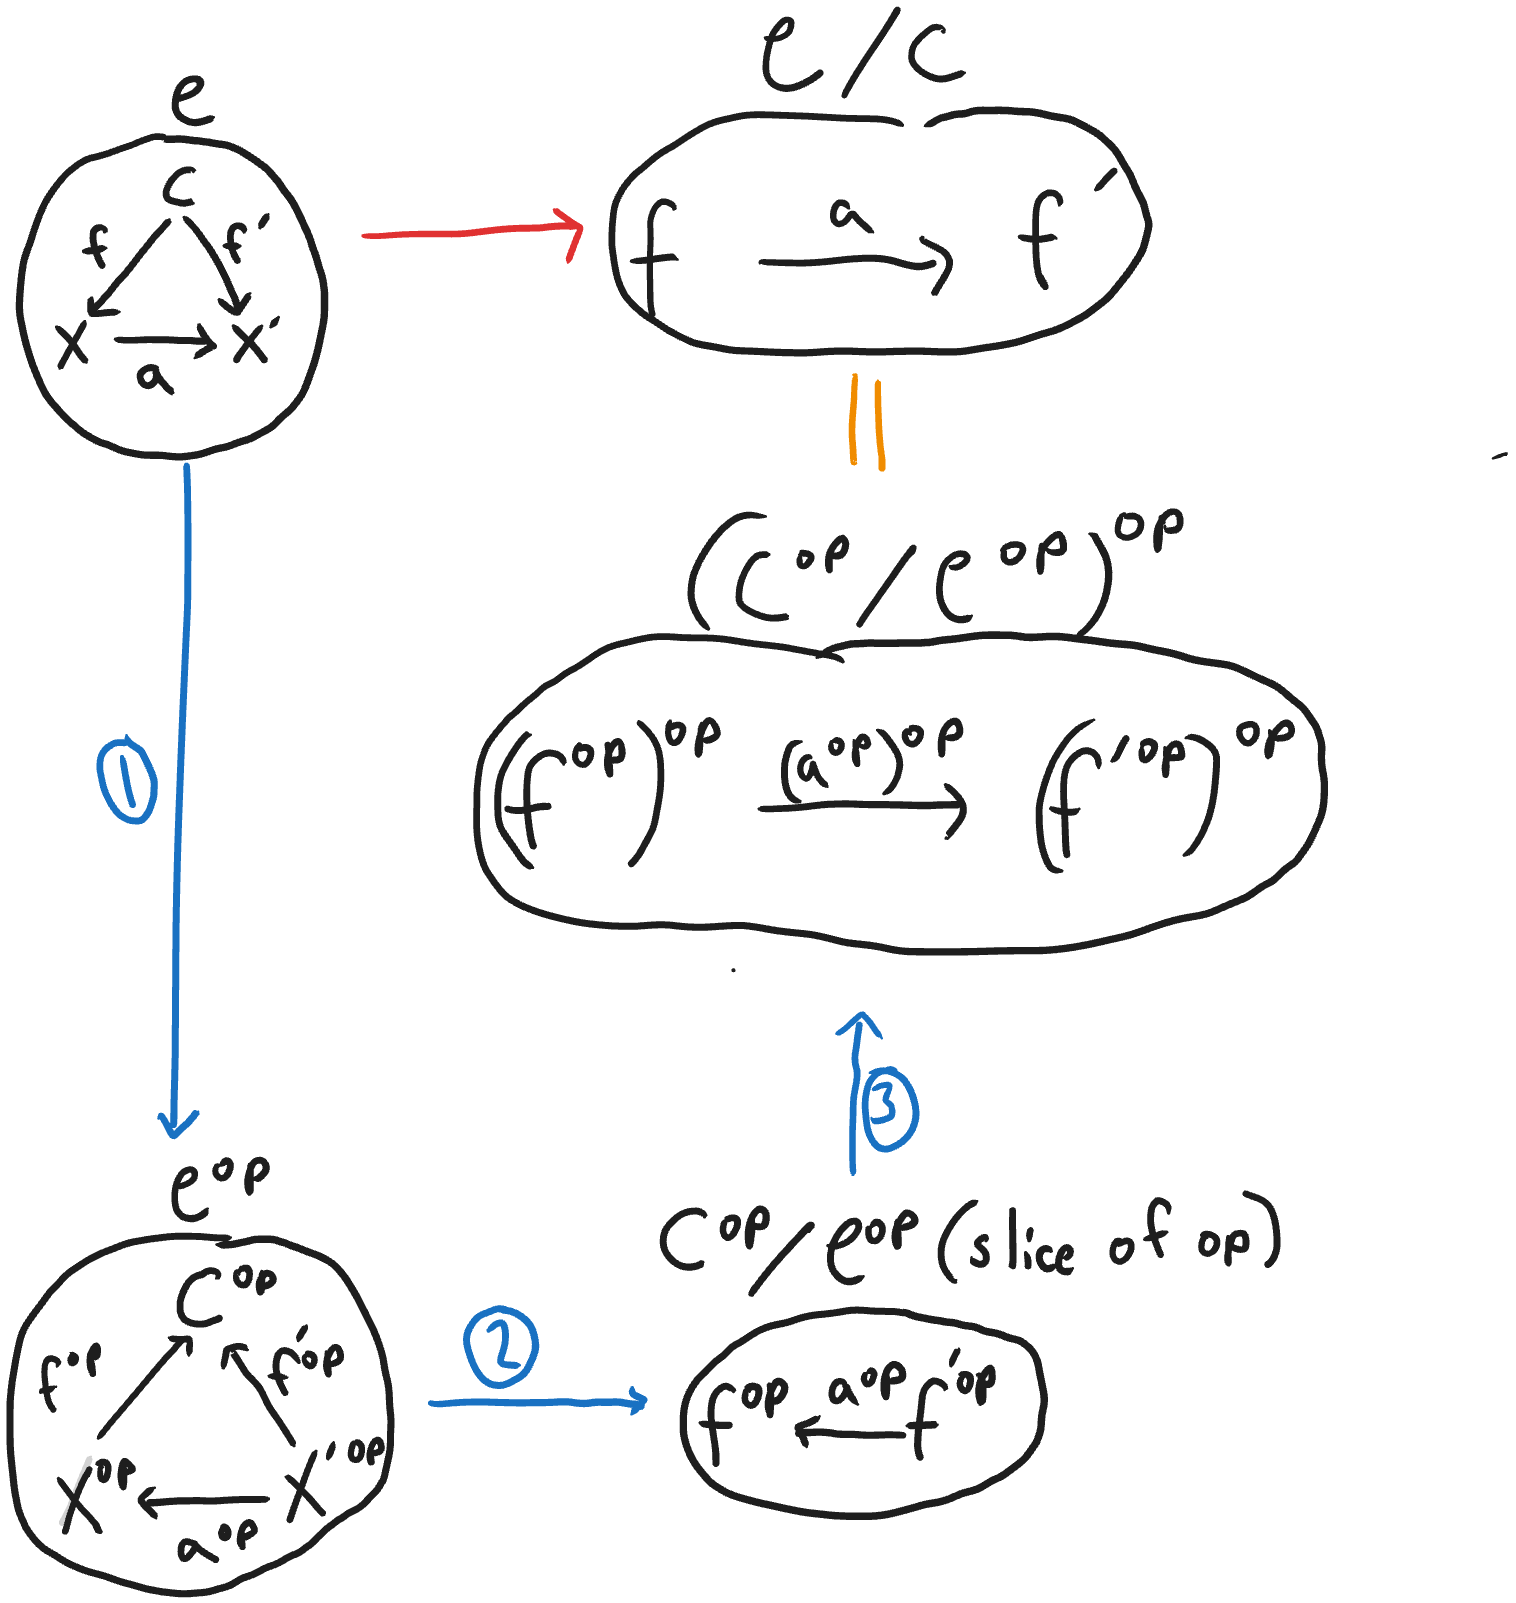 e
C
f f′
X X′
a
e/C
f a f′
(C^op/e^op)^op
(f^op)^op (a^op)^op (f′^op)^op
1
e^op
C^op
f^op f′^op
X^op X′^op
a^op
2
3
C^op/e^op (slice of op)
f^op a^op f′^op